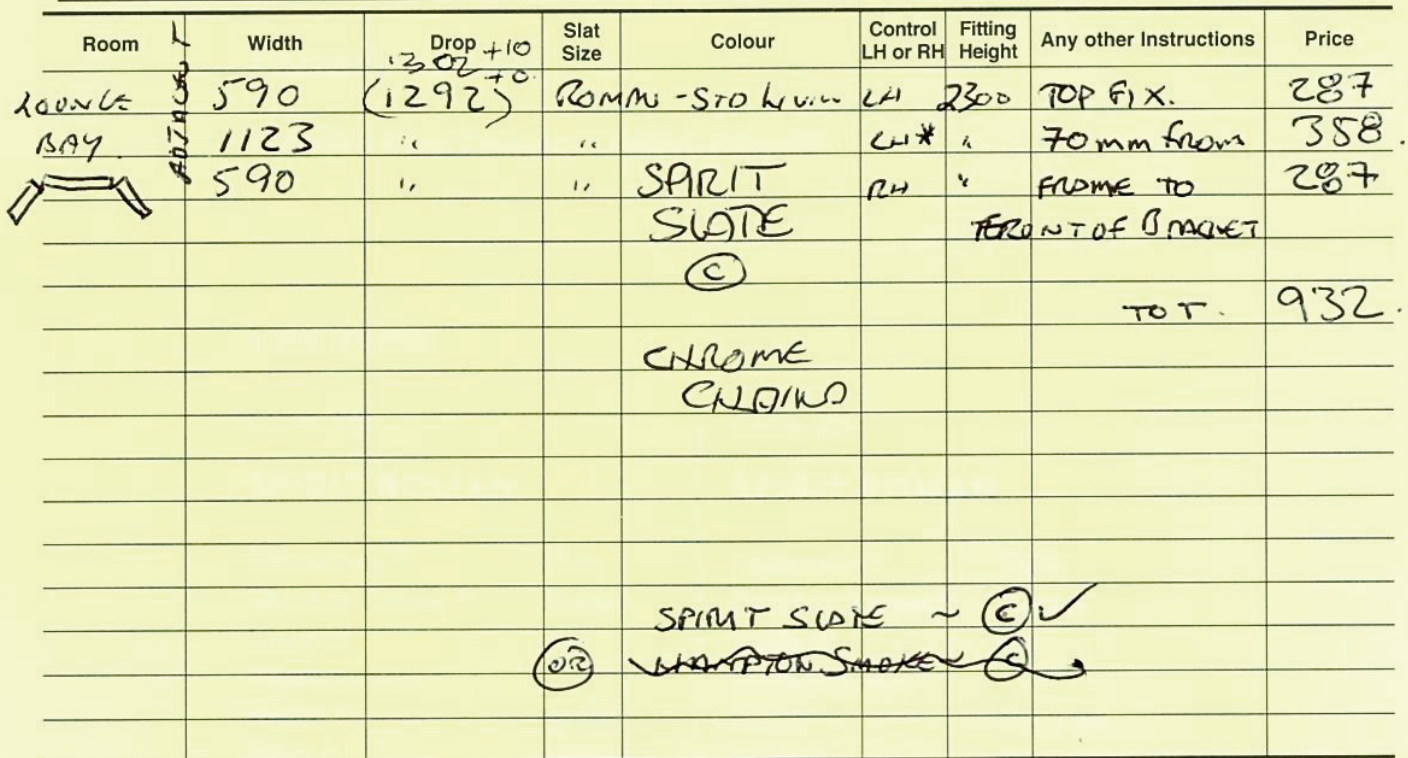 Room Width Drop Slat Size Colour Control LH or RH Fitting Height Any other Instructions Price
1302 +10
+0
LOUNGE 590 (1292) ROMAN - STD LH 2300 TOP FIX. 287
BAY. 1123 " " LH* " 70mm from 358.
590 " " SPIRIT RH " FRAME TO 287
SLATE FRONT OF BRACKET
C
TOT. 932.
CHROME
CHAIN
SPIRIT SLATE ~ C ✓
OR HAMPTON SMOKE ~ C